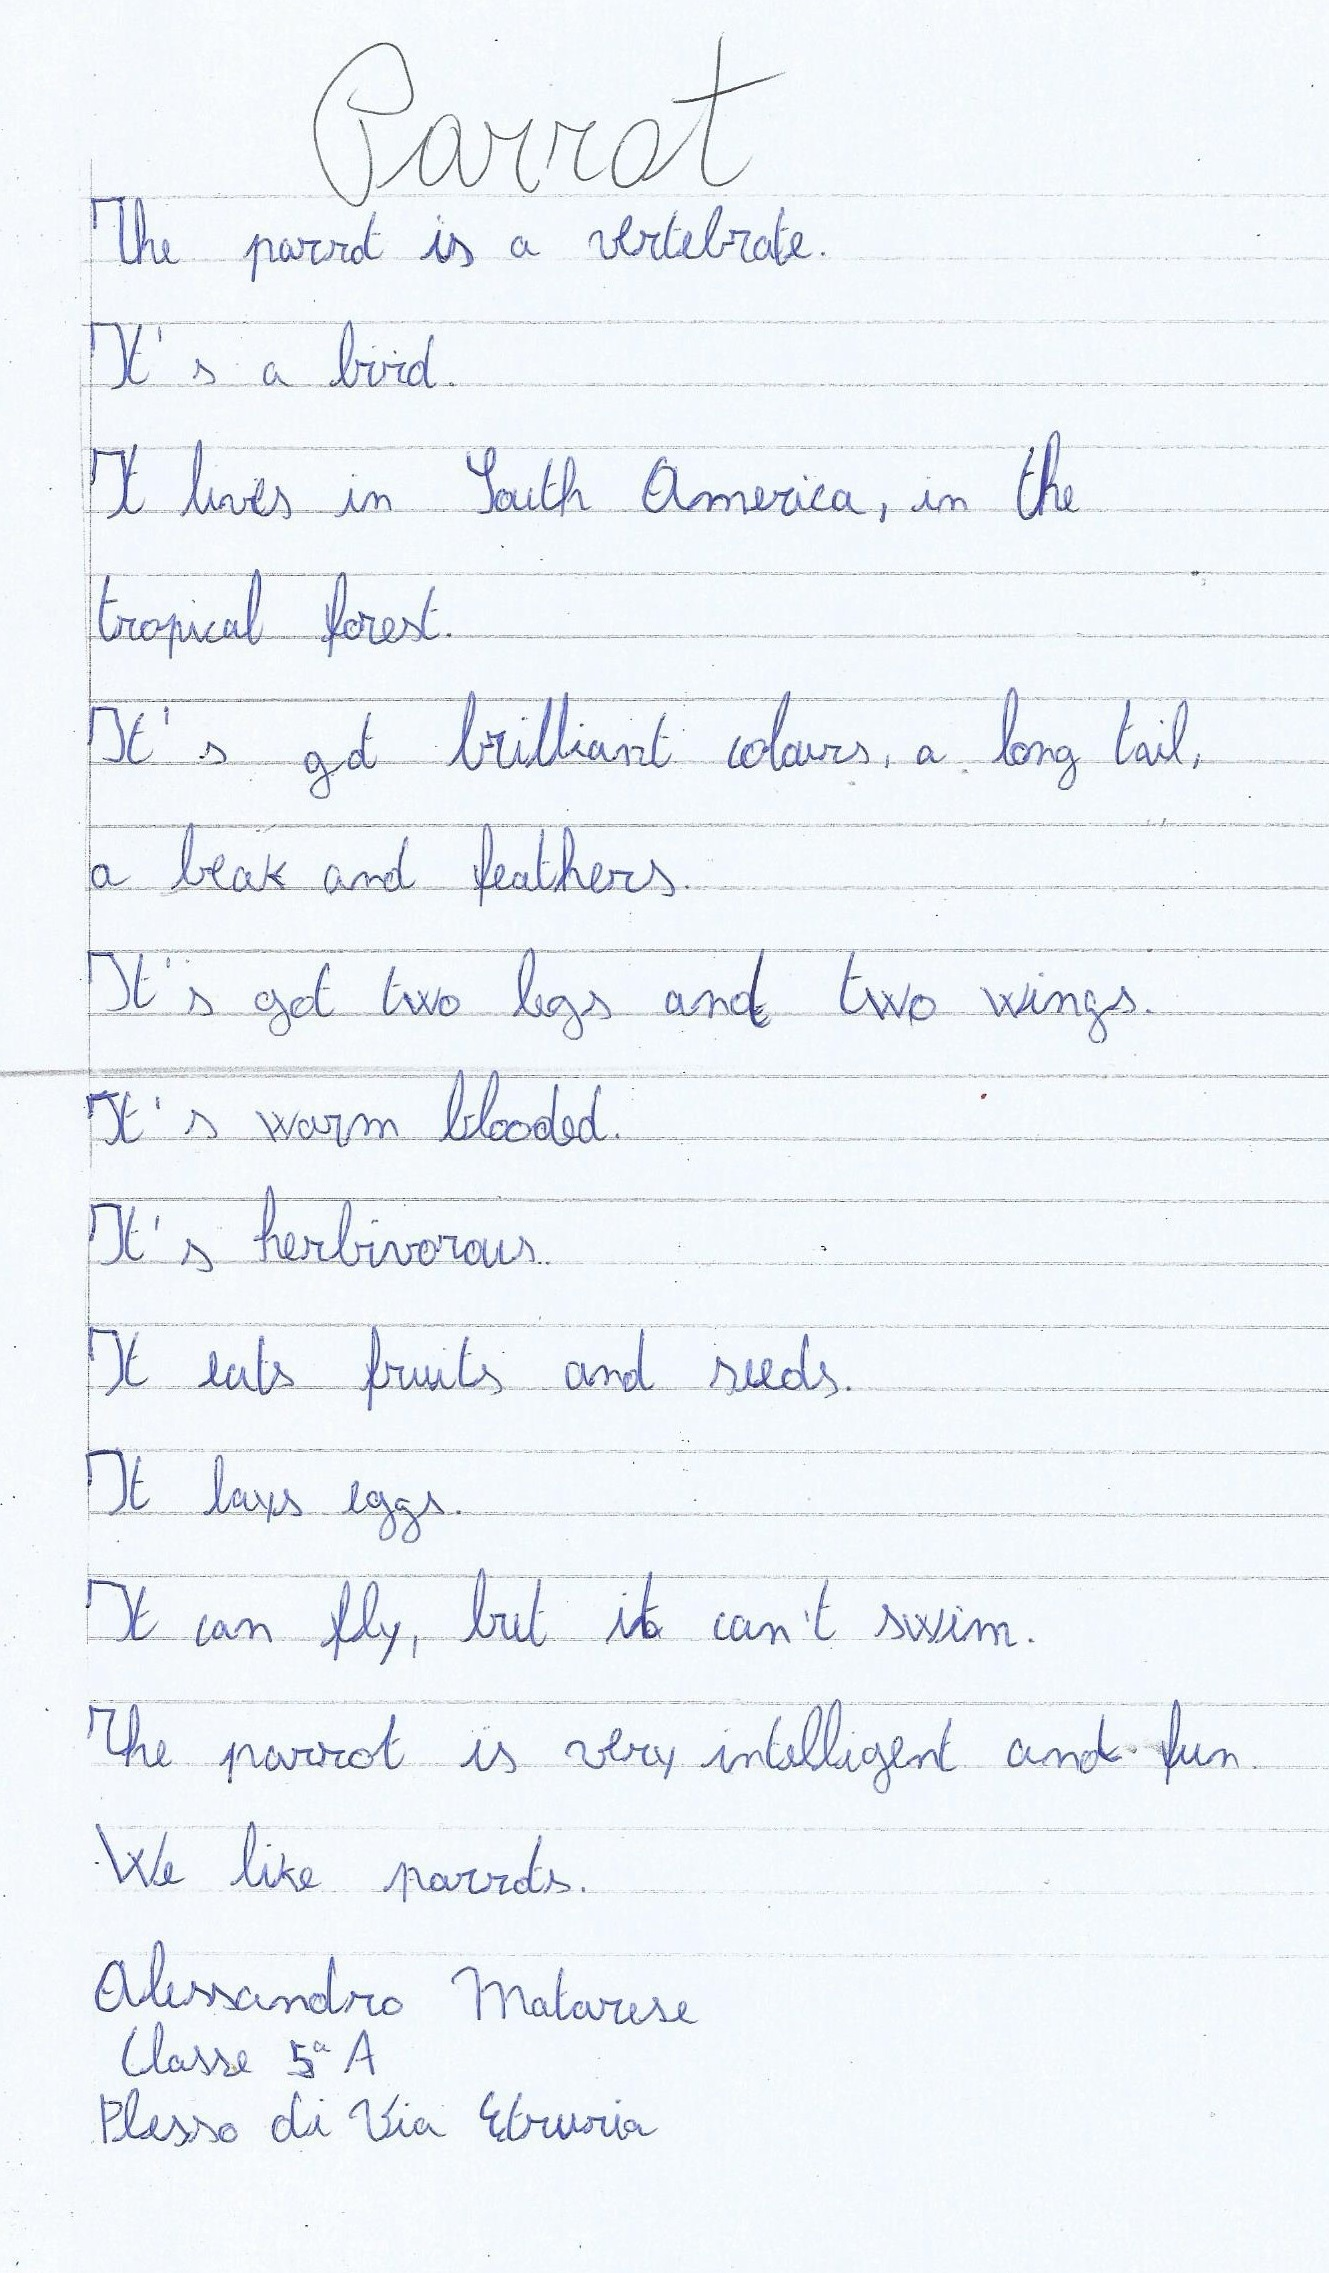 Parrot
The parrot is a vertebrate.
It's a bird.
It lives in South America, in the
tropical forest.
It's got brilliant colours, a long tail,
a beak and feathers.
It's got two legs and two wings.
It's warm blooded.
It's herbivorous.
It eats fruits and seeds.
It lays eggs.
It can fly, but it can't swim.
The parrot is very intelligent and fun.
We like parrots.
Alessandro Matarese
Classe 5ª A
Plesso di Via Etruria